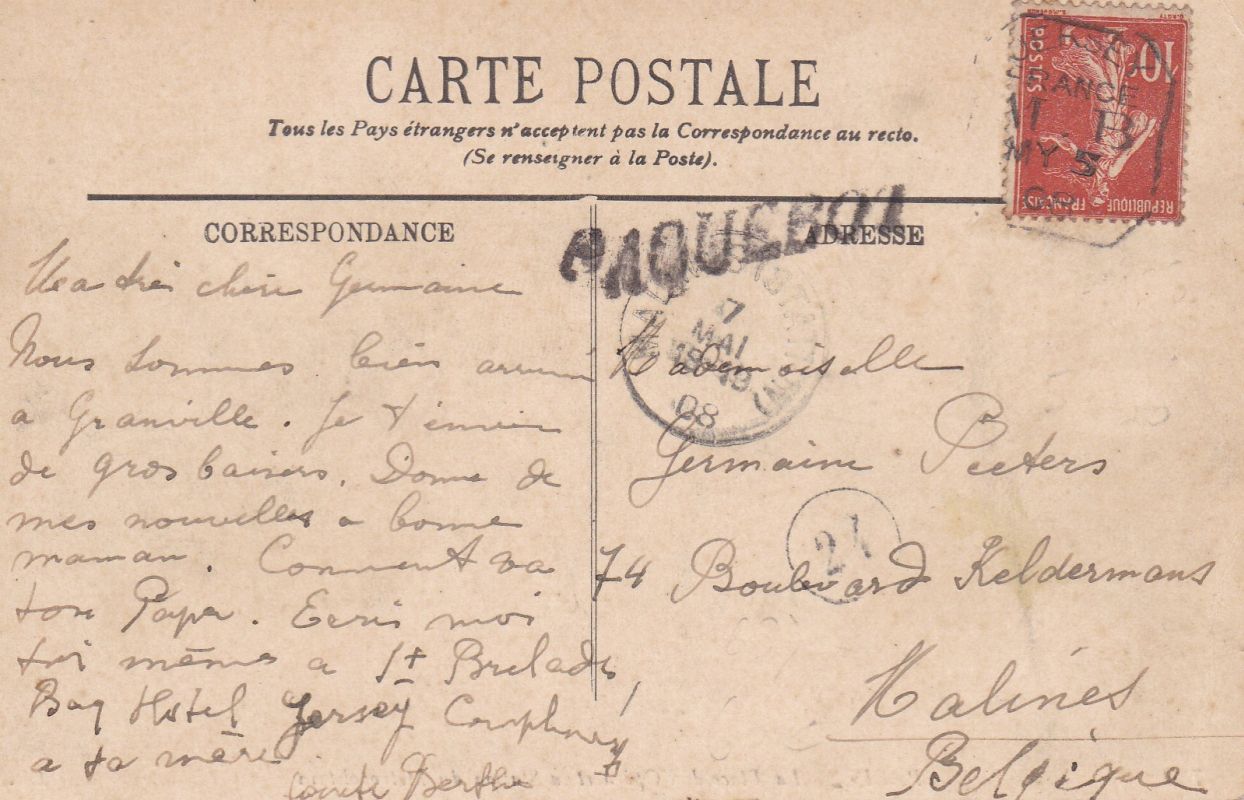 CARTE POSTALE
Tous les Pays étrangers n'acceptent pas la Correspondance au recto.
(Se renseigner à la Poste).
CORRESPONDANCE
Ma très chère Germaine
Nous sommes bien arrivé
a Granville. Je t'envoie
de gros baisers. Donne de
mes nouvelles a bonne
maman. Comment va
ton Papa. Ecris moi
toi même a St Brelade
Bay Hotel Jersey
a ta mère
Berthe
ADRESSE
PAQUEBOT
Mademoiselle
Germaine Peeters
74 Boulevard Keldermans
Malines
Belgique
10
POSTES
REPUBLIQUE FRANÇAISE
JERSEY
FRANCE
M.B
MY 5
08
7
MAI
08